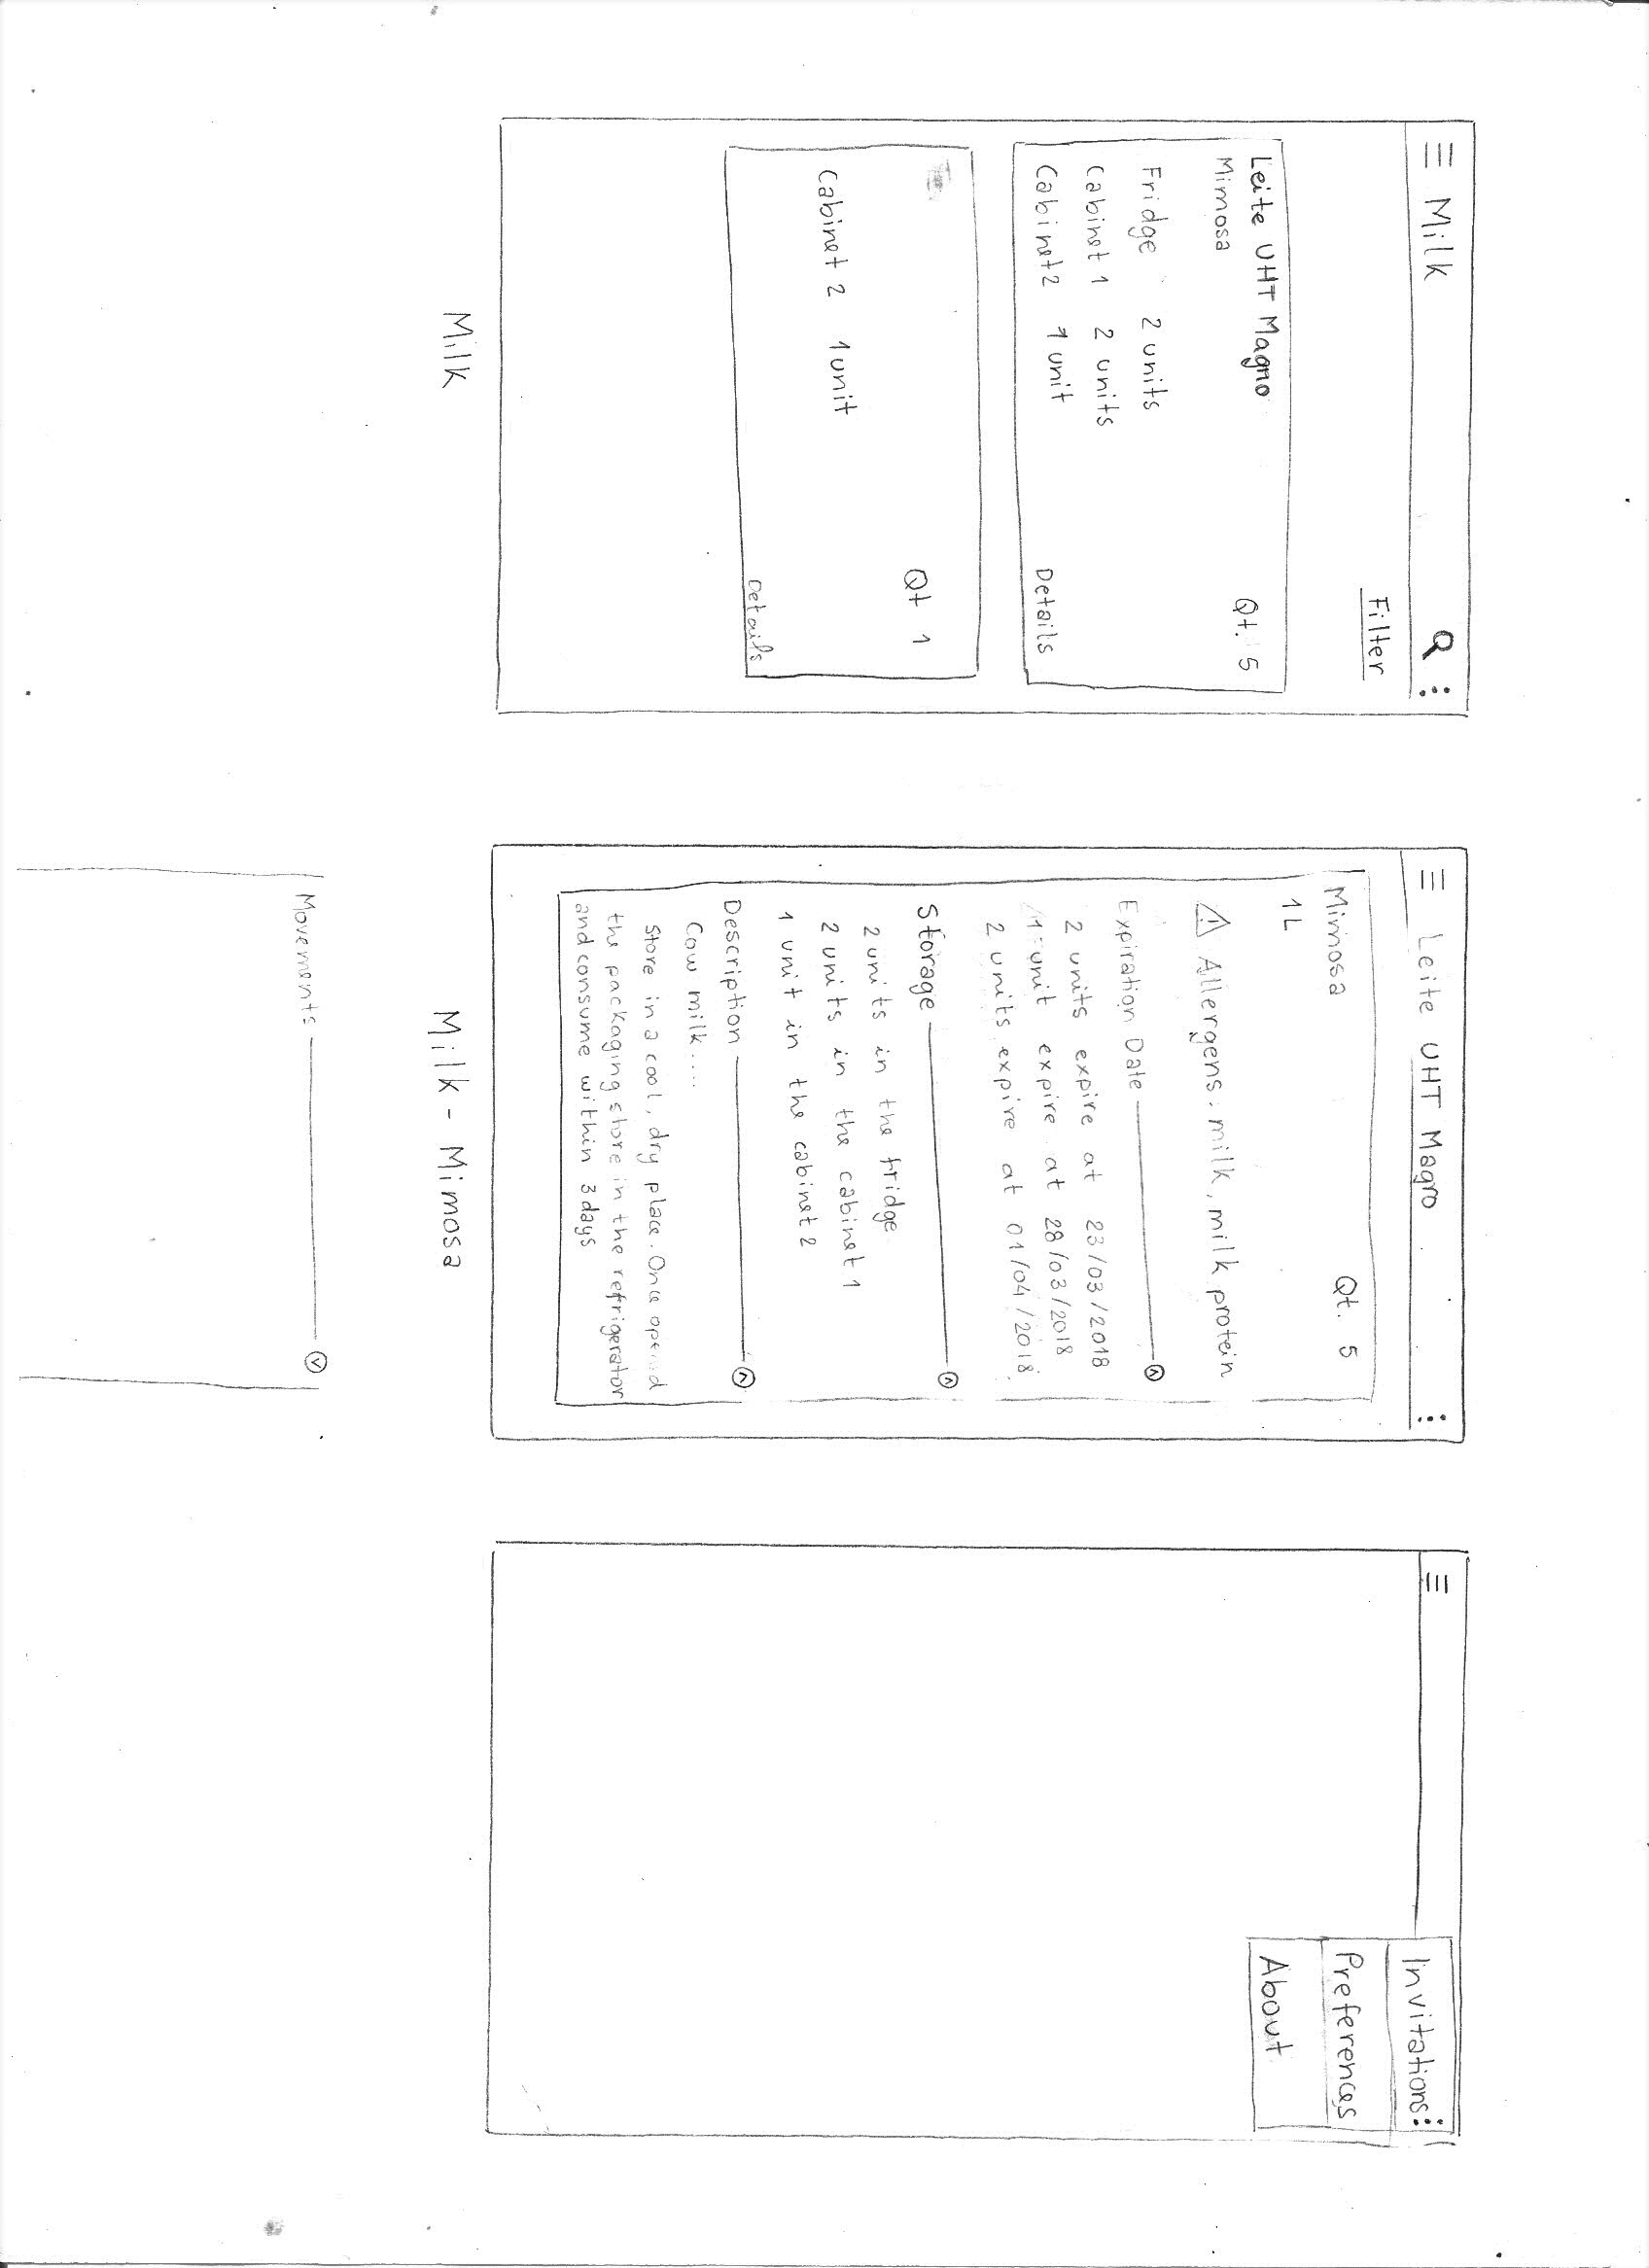 Milk
Filter
Leite UHT Magro
Mimosa
Qt. 5
Fridge 2 units
Cabinet 1 2 units
Cabinet 2 1 unit
Details
Qt 1
Cabinet 2 1 unit
Details
Milk
Leite UHT Magro
Mimosa Qt. 5
1 L
Allergens: milk, milk protein
Expiration Date
2 units expire at 23/03/2018
1 unit expire at 28/03/2018
2 units expire at 01/04/2018
Storage
2 units in the fridge
2 units in the cabinet 1
1 unit in the cabinet 2
Description
Cow milk....
Store in a cool, dry place. Once opened
the packaging store in the refrigerator
and consume within 3 days
Milk - Mimosa
Movements
Invitations
Preferences
About